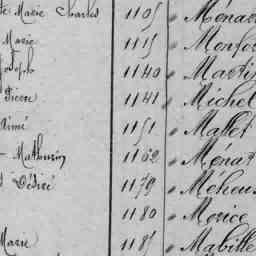 Marie Charles 1105 Ménar
Marie 1115 Monfor
Joseph 1140 Marti
Pierre 1141 Michel
Aimé 1151 Mallet
Mathurin 1162 Ménar
Désiré 1179 Méheus
1180 Morice
Marie 1181 Mabille